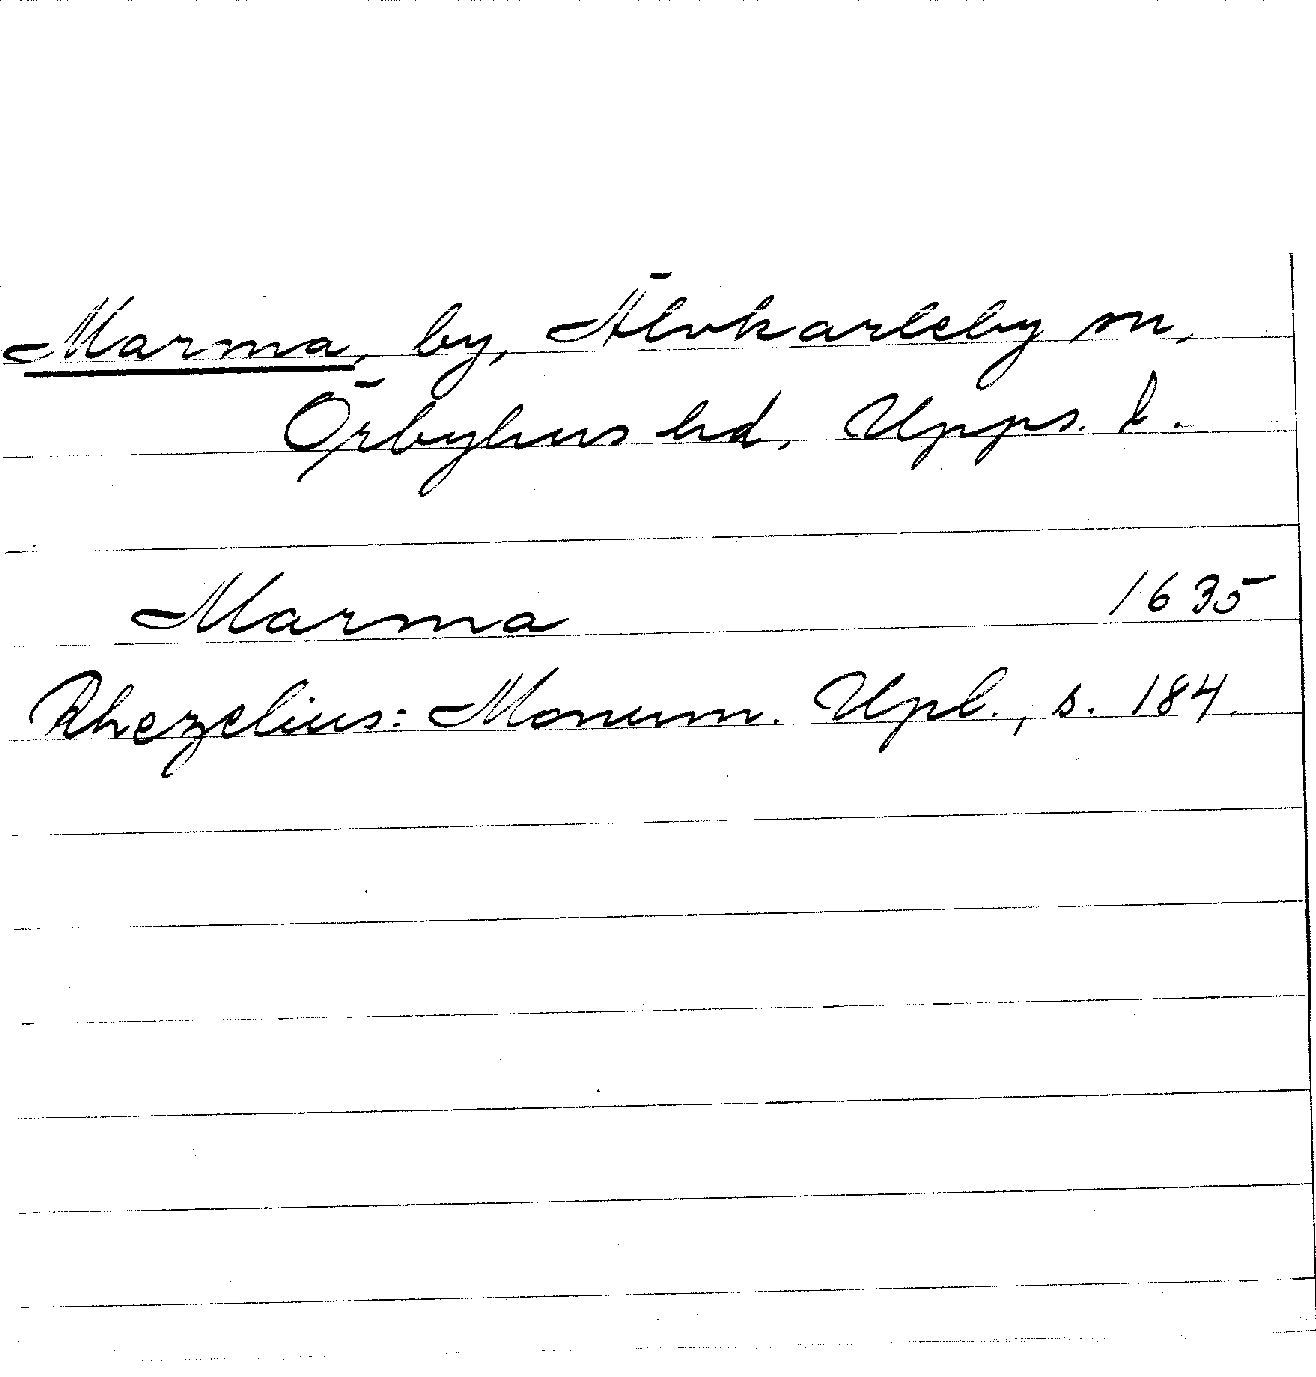 Marma, by, Älvkarleby sn,
Örbyhus hd, Upps. l.
Marma 1635
Rhezelius: Monum. Upl., s. 184.